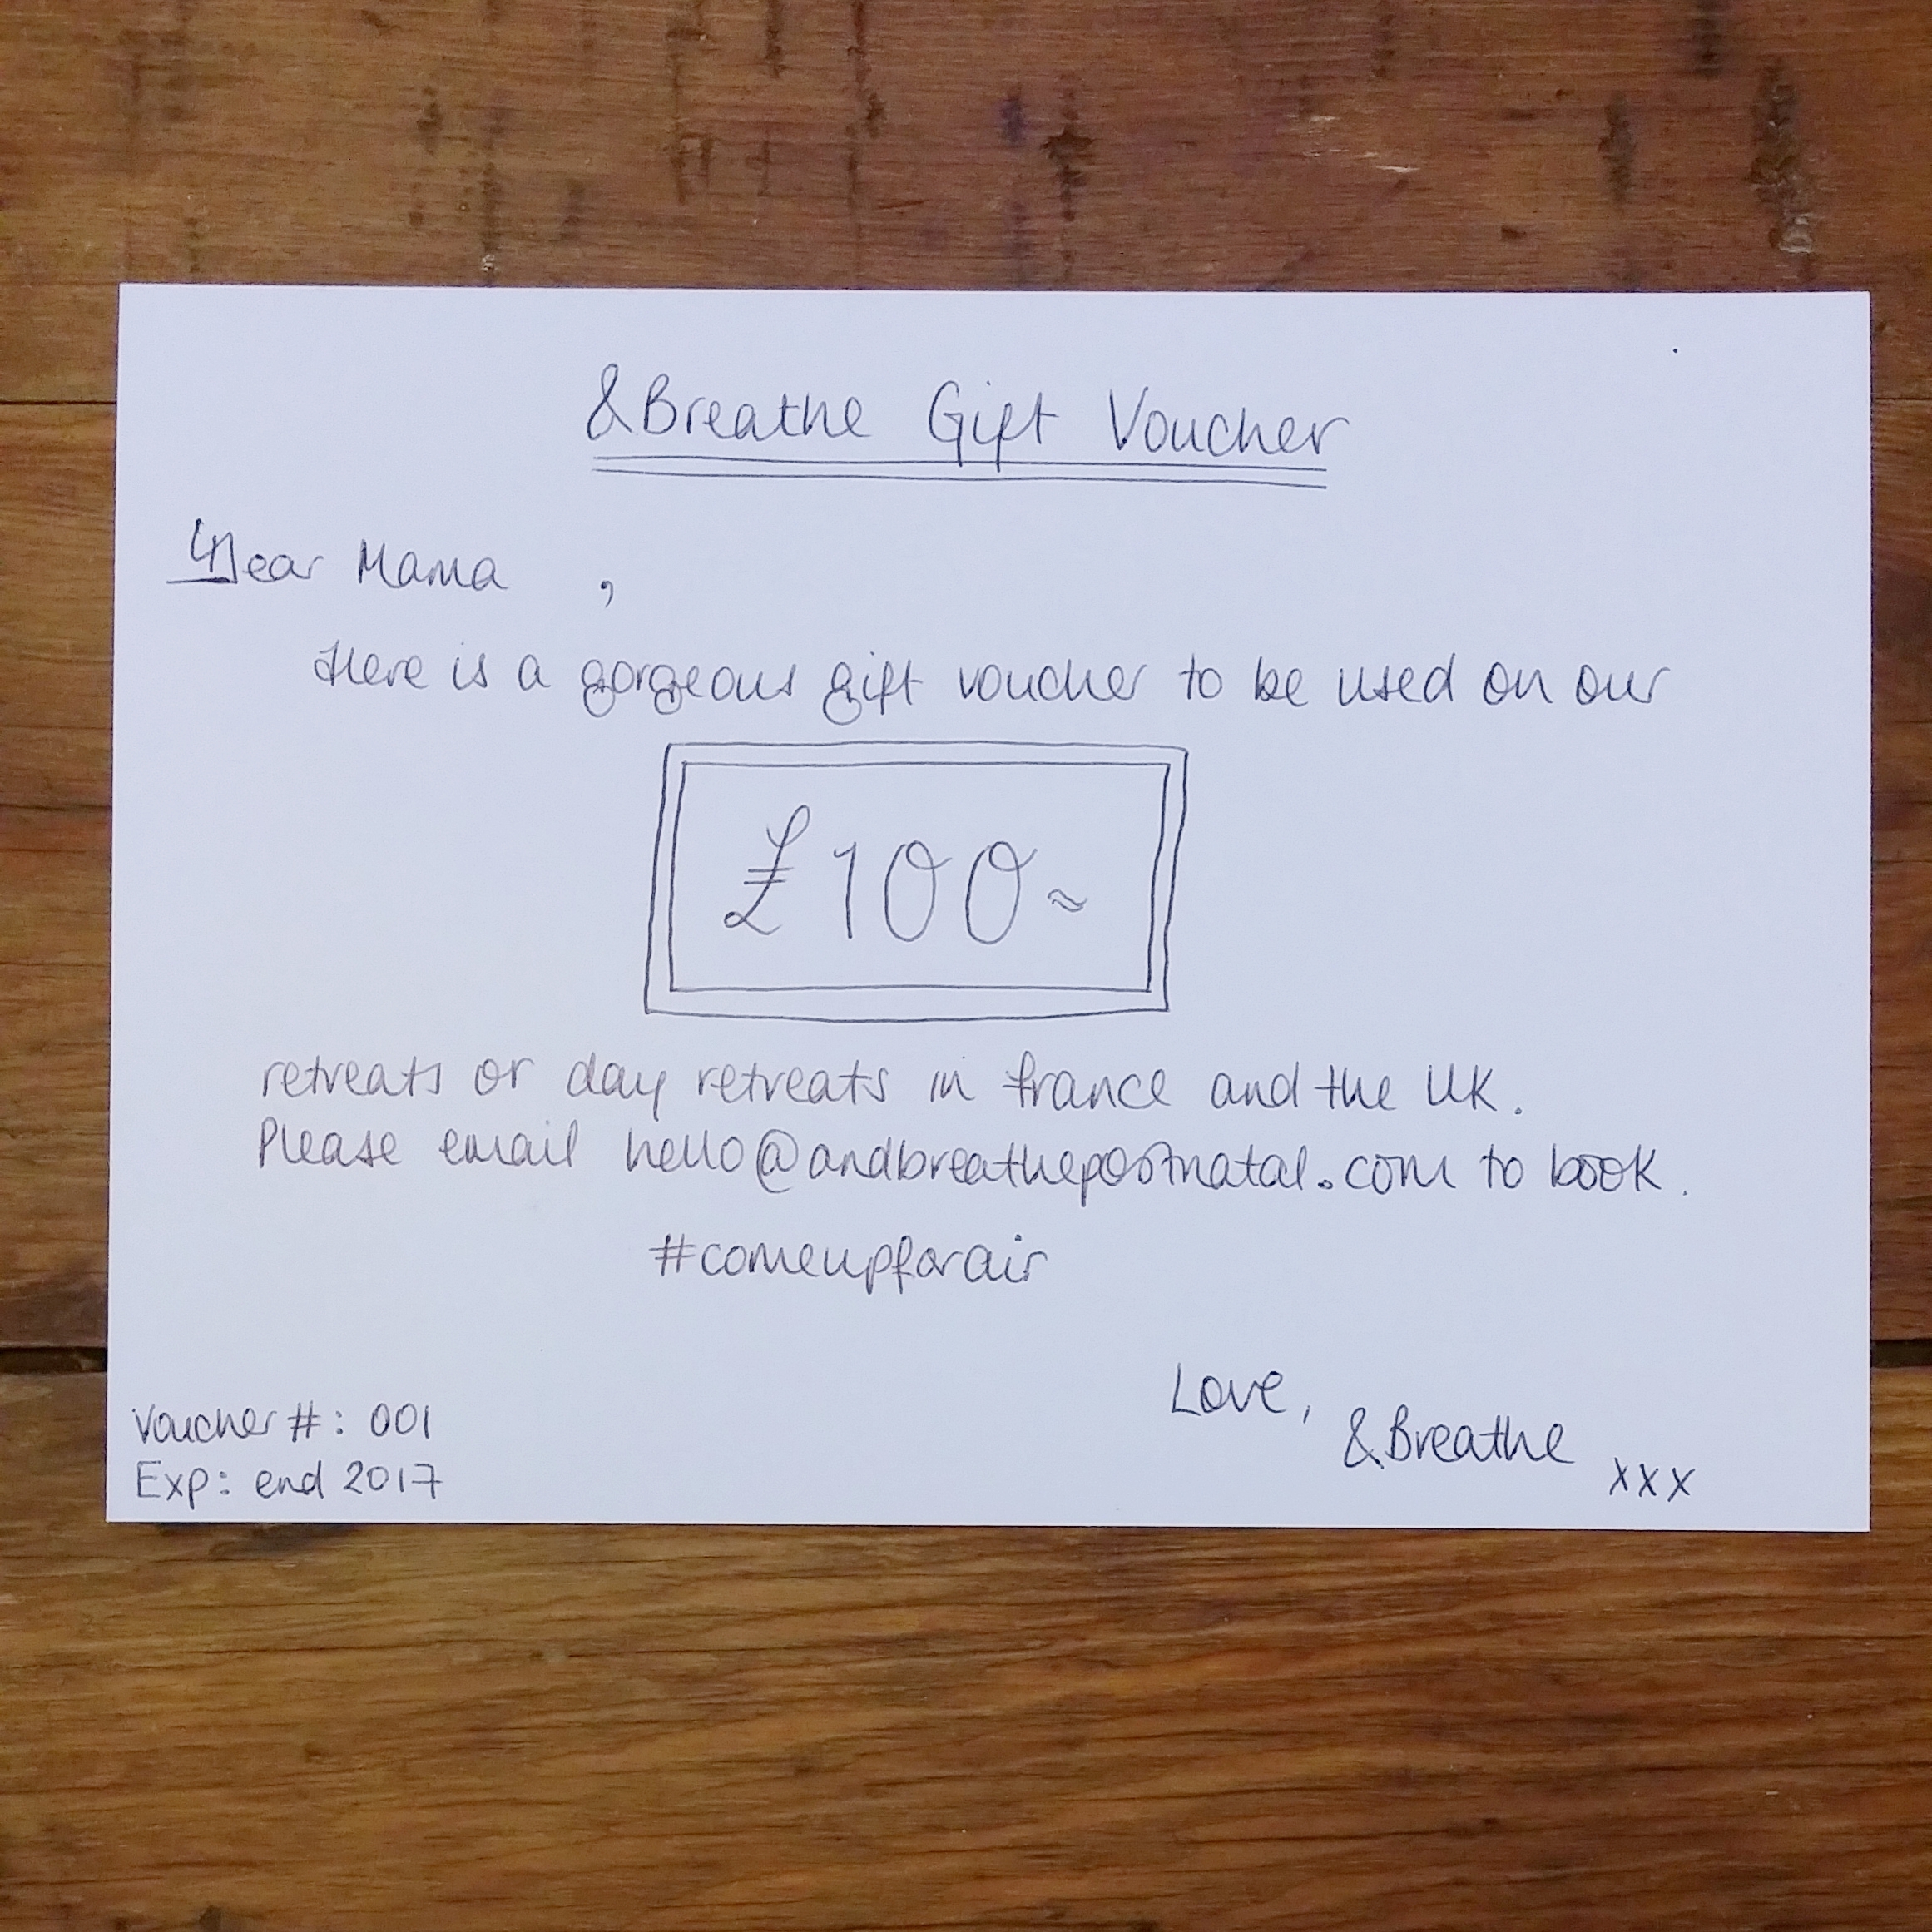 &Breathe Gift Voucher
Dear Mama ,
Here is a gorgeous gift voucher to be used on our
£100~
retreats or day retreats in france and the UK.
Please email hello@andbreathepostnatal.com to book.
#comeupforair
Love,
&Breathe xxx
Voucher #: 001
Exp: end 2017